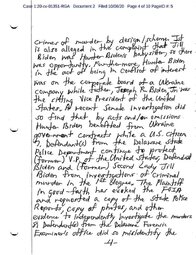 Case 1:20-cv-01351-RGA Document 2 Filed 10/06/20 Page 4 of 10 PageID #: 5
crimes of murder by design/scheme. It
is also alleged in the complaint that Jill
Biden was Hunter Biden's babysitter, so there
was opportunity. Furthermore, Hunter Biden
in the act of being in conflict of interest
was on the corporate board of a Ukraine
company while father, Joseph R. Biden, Jr. was
the sitting Vice President of the United
States. A recent Senate investigation did
so find that by acts and/or omissions
Hunter Biden benefited from Ukraine
government contracts while a U.S. citizen
Defendant(s) from the Delaware State
Police Department continue to protect
(former) V.P. of the United States, Defendant
Biden and (former) Second Lady Jill
Biden from investigations of criminal
murder in the 1st Degree. The Plaintiff
in Good-faith has evoked the FOIA
and requested a copy of the State Police
Reports, copy of photos, and proffer
evidence to independently investigate the murders
Defendant(s) from the Delaware Forensic
Examiner's office did so misidentify the
-4-